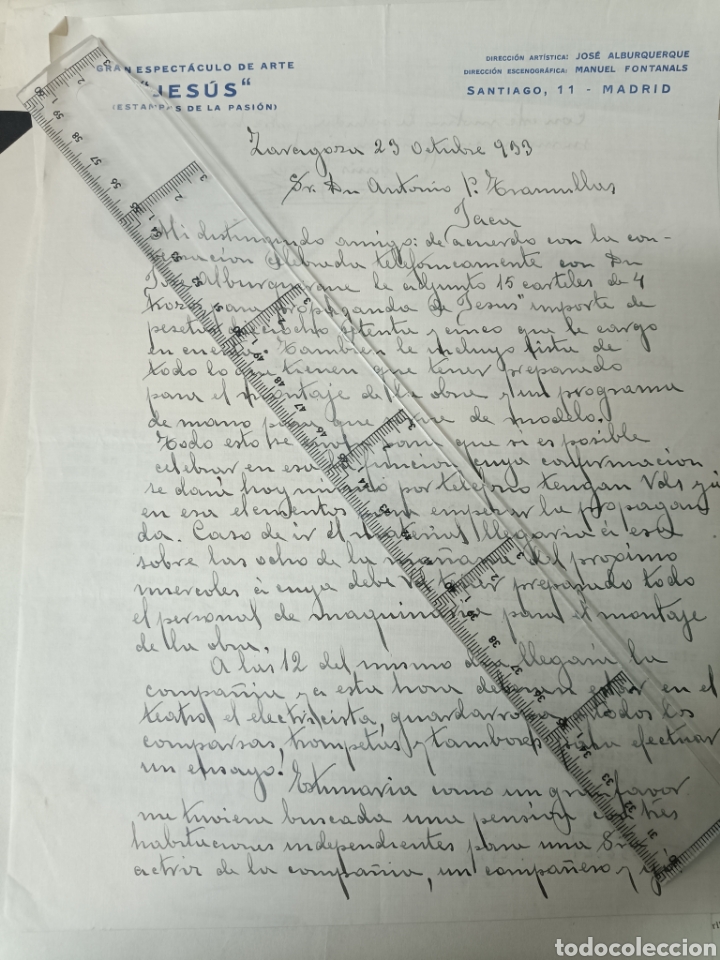 GRAN ESPECTÁCULO DE ARTE
"JESÚS"
(ESTAMPAS DE LA PASIÓN)
DIRECCIÓN ARTÍSTICA: JOSÉ ALBURQUERQUE
DIRECCIÓN ESCENOGRÁFICA: MANUEL FONTANALS
SANTIAGO, 11 - MADRID
Zaragoza 23 Octubre 933
Sr. Dn Antonio P. Tramullas
Jaca
Mi distinguido amigo: de acuerdo con la con-
celebrada telefónicamente con Dn
José Alburquerque le adjunto 15 carteles de 4
trozos para propaganda de "Jesus" importe de
pesetas dieciocho setenta y cinco que le cargo
en cuenta. Tambien le incluyo lista de
todo lo que tienen que tener preparado
para el montaje de la obra y un programa
de mano para que sirve de modelo.
Todo esto para que si es posible
celebrar en esa la funcion cuya confirmacion
se dará hoy mismo por telefono tengan Vds ya
en esa elementos para empezar la propagan
da. Caso de ir el material llegaria á esa
sobre las ocho de la mañana del proximo
miercoles á cuya debe Vd tener preparado todo
el personal de maquinaria para el montaje
de la obra.
A las 12 del mismo dia llegaria la
compañia y a esta hora deberan estar en el
teatro el electricista, guardarropa, todos los
comparsas, trompetas y tambores para efectuar
un ensayo!
Estimaria como un gran favor
me tuviera buscada una pensión con tres
habitaciones independientes para una
actriz de la compañia, un compañero y yo
todocoleccion.net